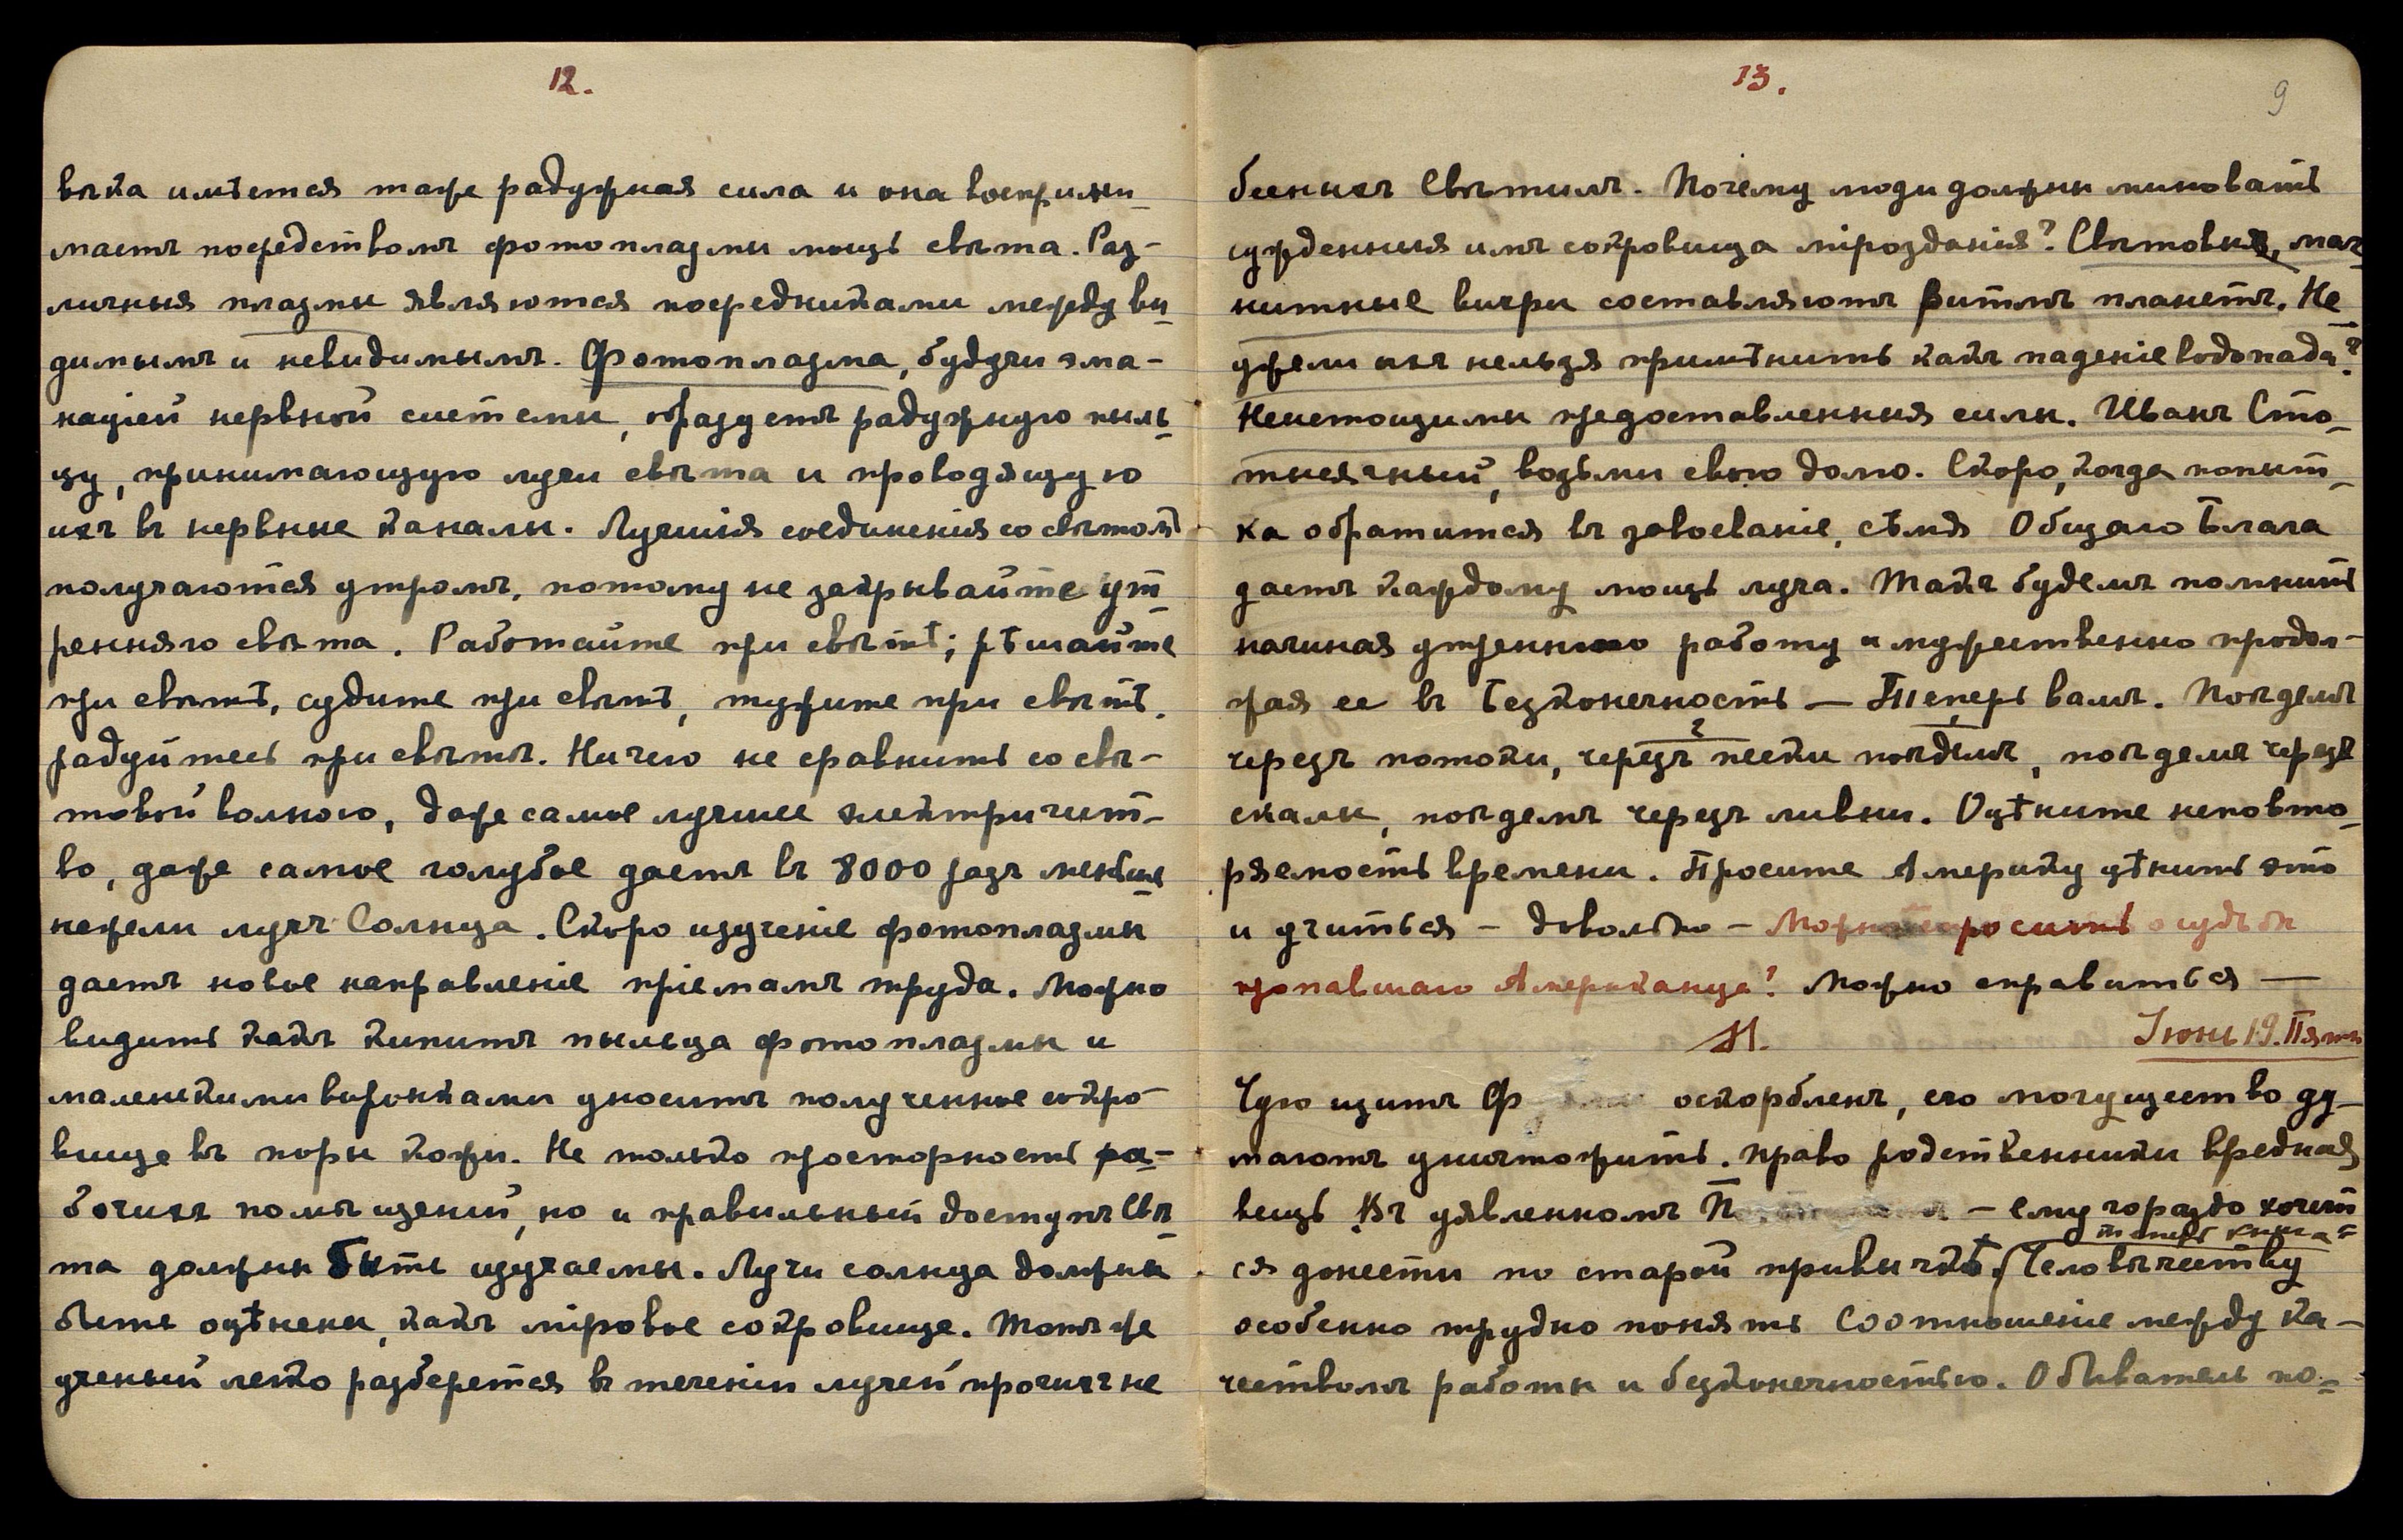 12.
вѣка имѣется таже радужная сила и она восприни-
маетъ посредствомъ фотоплазмы мощь свѣта. Раз-
личныя плазмы являются посредниками между ви-
димымъ и невидимымъ. Фотоплазма, будучи эма-
націей нервной системы, образуетъ радужную пыль-
цу, принимающую лучи свѣта и проводящую
ихъ въ нервные каналы. Лучшія соединенія со свѣтомъ
получаются утромъ, потому не закрывайте ут-
ренняго свѣта. Работайте при свѣтѣ; рѣшайте
при свѣтѣ, судите при свѣтѣ, тужите при свѣтѣ,
радуйтесь при свѣтѣ. Ничего не сравнить со свѣ-
товой волною, даже самое лучшее электричест-
во, даже самое голубое даетъ въ 8000 разъ меньше
нежели лучъ Солнца. Скоро изученіе фотоплазмы
дастъ новое направленіе пріемамъ труда. Можно
видить какъ кипитъ пыльца фотоплазмы и
маленькими воронками уноситъ полученное сокро-
вище въ поры кожи. Не только просторность ра-
бочихъ помѣщеній, но и правильный доступъ Свѣ-
та должны быть изучаемы. Лучи солнца должны
быть оцѣнены, какъ міровое сокровище. Тотъ же
ученый легко разберется въ теченіи лучей прочихъ не
13.
9
бесныхъ Свѣтилъ. Почему люди должны миновать
сужденныя имъ сокровища мірозданія? Свѣтовыя, маг-
нитные вихри составляютъ ритмъ планетъ. Не-
ужели ихъ нельзя примѣнить какъ паденіе водопада?
Неистощимы предоставленныя силы. Иванъ Сто-
тысячный, возьми свою долю. Скоро, когда попыт-
ка обратится въ завоеваніе, сѣмя Общаго Блага
дастъ каждому мощь луча. Такъ будемъ помнить
начиная утреннюю работу и мужественно продол-
жая ее въ безконечность — Теперь вамъ. Пойдемъ
черезъ потоки, черезъ пески пойдемъ, пойдемъ черезъ
скалы, пойдемъ черезъ ливни. Оцѣните неповто-
ряемость времени. Просите Америку цѣнить это
и учиться — довольно — Можно просить о судьбѣ
пропавшаго Американца? Можно справиться —
Іюнь 19. Пятн
Чую щитъ Ф оскорбленъ, его могущество ду-
маютъ уничтожить. Право родственники вредная
вещь. Въ уявленномъ П — ему гораздо хочет-
ся донести по старой привычкѣ. Человѣчеству
особенно трудно понять Соотношеніе между ка-
чествомъ работы и безконечностью. Обыватель по-